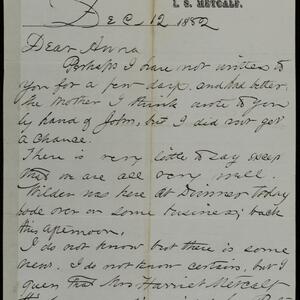 I. S. METCALF.
Dec, 12 1882
Dear Anna
Perhaps I have not written to
you for a few days, and had better.
The Mother I think wrote to you
by hand of John, but I did not get
a chance.
There is very little to say except
that we are all very well.
Wilder was here at Dinner today
rode over on some business; back
this afternoon.
I do not know but there is some
news. I do not know certain, but I
guess that Mrs Harriet Metcalf